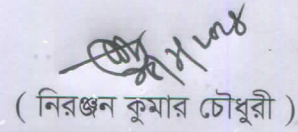 ( নিরঞ্জন কুমার চৌধুরী )